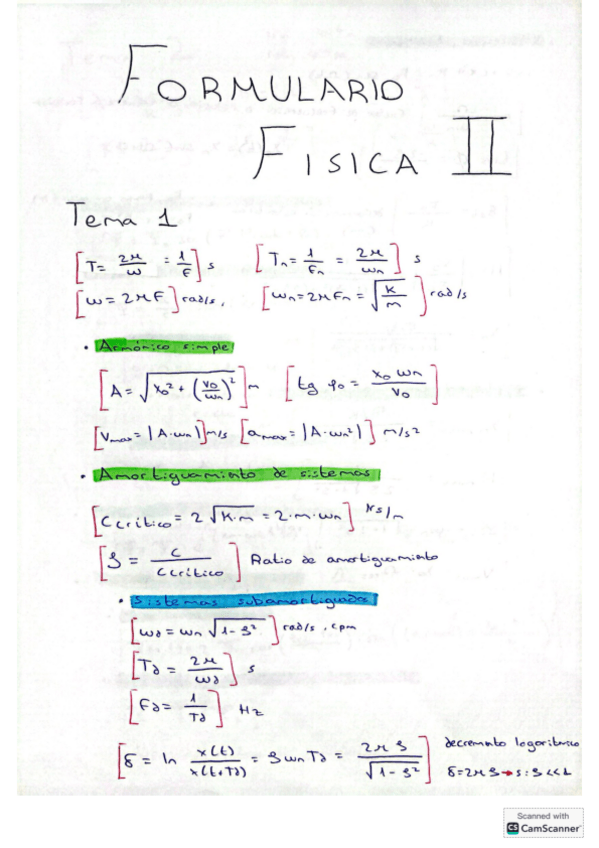 FORMULARIO
FISICA II
Tema 1
[T = 2π/ω = 1/F] s [Tn = 1/Fn = 2π/ωn] s
[ω = 2πF] rad/s, [ωn = 2πFn = √(K/m)] rad/s
• Armónico simple
[A = √(x₀² + (v₀/ωn)²)] m [tg φ₀ = x₀ ωn / v₀]
[Vmax = |A·ωn|] m/s [amax = |A·ωn²|] m/s²
• Amortiguamiento de sistemas
[Ccrítico = 2√(K·m) = 2·m·ωn] Ns/m
[ζ = C/Ccrítico] Ratio de amortiguamiento
• Sistemas subamortiguados
[ωd = ωn √(1-ζ²)] rad/s, cpm
[Td = 2π/ωd] s
[Fd = 1/Td] Hz
[δ = ln x(t)/x(t+Td) = ζωnTd = 2πζ/√(1-ζ²)] decremento logaritmico
δ=2πζ → si ζ<<1
Scanned with
CS CamScanner